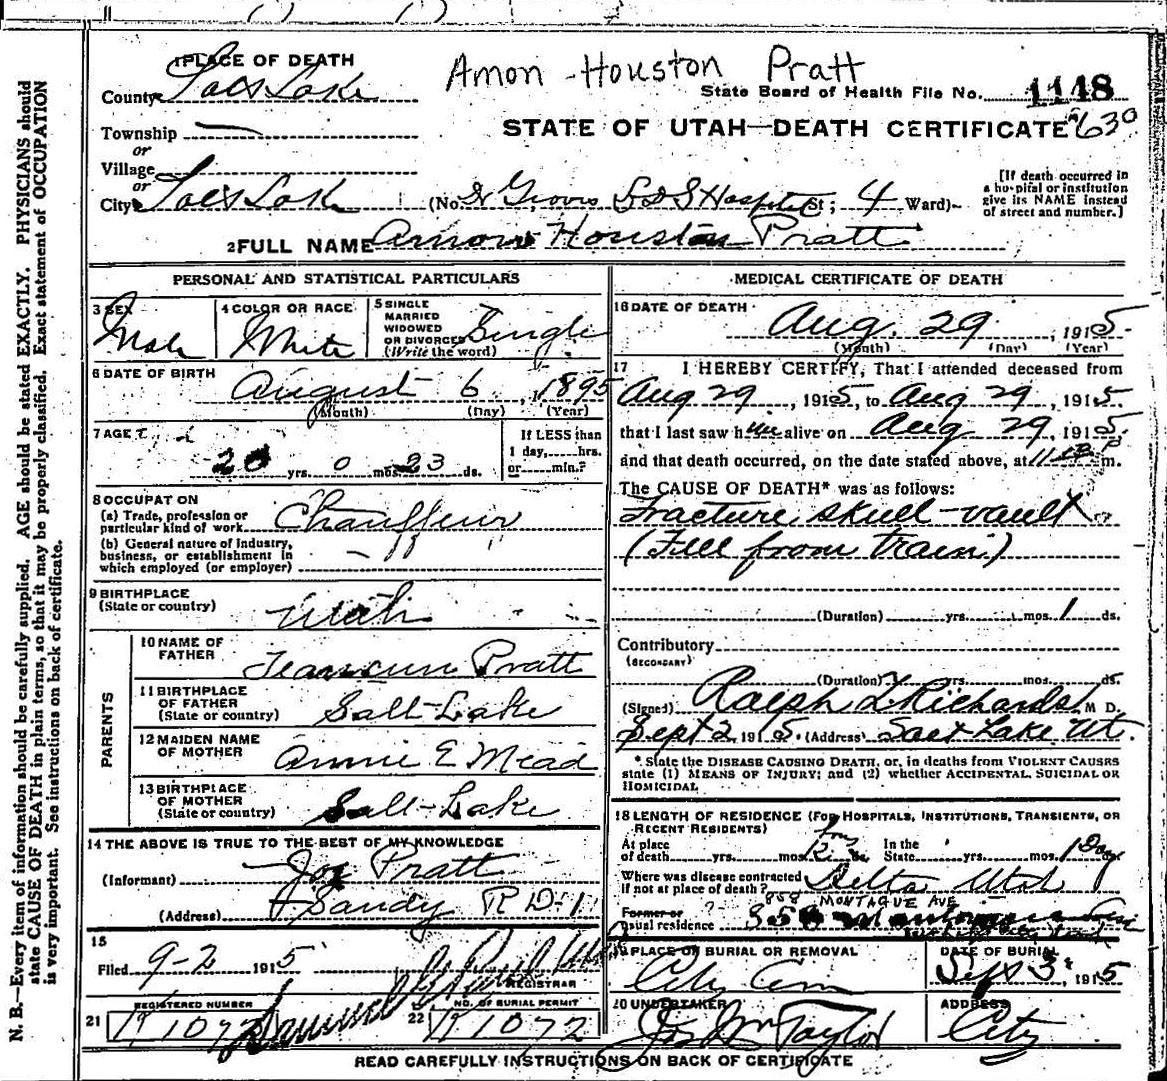 1 PLACE OF DEATH
Amon Houston Pratt
County Salt Lake
State Board of Health File No. 1148
Township —
STATE OF UTAH—DEATH CERTIFICATE 630
or
Village
or
City Salt Lake (No. Groves L D S Hospital St; 4 Ward)
[If death occurred in a hospital or institution give its NAME instead of street and number.]
2 FULL NAME Amon Houston Pratt
PERSONAL AND STATISTICAL PARTICULARS
3 SEX Male
4 COLOR OR RACE White
5 SINGLE MARRIED WIDOWED OR DIVORCED (Write the word) Single
6 DATE OF BIRTH August 6, 1895
(Month) (Day) (Year)
7 AGE 20 yrs. 0 mos. 23 ds.
If LESS than 1 day, ......hrs. or ......min.?
8 OCCUPATION
(a) Trade, profession or particular kind of work Chauffeur
(b) General nature of industry, business, or establishment in which employed (or employer) —
9 BIRTHPLACE
(State or country) Utah
PARENTS
10 NAME OF FATHER Pratt
11 BIRTHPLACE OF FATHER (State or country) Salt Lake
12 MAIDEN NAME OF MOTHER Annie E Mead
13 BIRTHPLACE OF MOTHER (State or country) Salt Lake
14 THE ABOVE IS TRUE TO THE BEST OF MY KNOWLEDGE
(Informant) Pratt
(Address) Sandy R D 1
15
Filed 9-2 1915
REGISTRAR
REGISTERED NUMBER
21 R 1072
NO. OF BURIAL PERMIT
22 R 1072
MEDICAL CERTIFICATE OF DEATH
16 DATE OF DEATH Aug. 29, 1915.
(Month) (Day) (Year)
17 I HEREBY CERTIFY, That I attended deceased from
Aug 29, 1915, to Aug 29, 1915.
that I last saw him alive on Aug 29, 1915.
and that death occurred, on the date stated above, at 11 P m.
The CAUSE OF DEATH* was as follows:
Fracture skull—vault
(Fell from train.)
(Duration) yrs. mos. 1 ds.
Contributory
(SECONDARY)
(Duration) yrs. mos. ds.
(Signed) Ralph T Richards M D.
Sept 2, 1915. (Address) Salt Lake Ut.
*State the DISEASE CAUSING DEATH, or, in deaths from VIOLENT CAUSES
state (1) MEANS OF INJURY; and (2) whether ACCIDENTAL, SUICIDAL OR
HOMICIDAL
18 LENGTH OF RESIDENCE (FOR HOSPITALS, INSTITUTIONS, TRANSIENTS, OR
RECENT RESIDENTS)
At place of death yrs. mos.
In the State yrs. mos. 1 Day
Where was disease contracted if not at place of death? Delta Utah
858 MONTAGUE AVE
Former or usual residence
19 PLACE OF BURIAL OR REMOVAL
City Cem
DATE OF BURIAL
Sept 3, 1915
20 UNDERTAKER
Jos Wm Taylor
ADDRESS
City
READ CAREFULLY INSTRUCTIONS ON BACK OF CERTIFICATE
N. B.—Every item of information should be carefully supplied. AGE should be stated EXACTLY. PHYSICIANS should
state CAUSE OF DEATH in plain terms, so that it may be properly classified. Exact statement of OCCUPATION
is very important. See instructions on back of certificate.